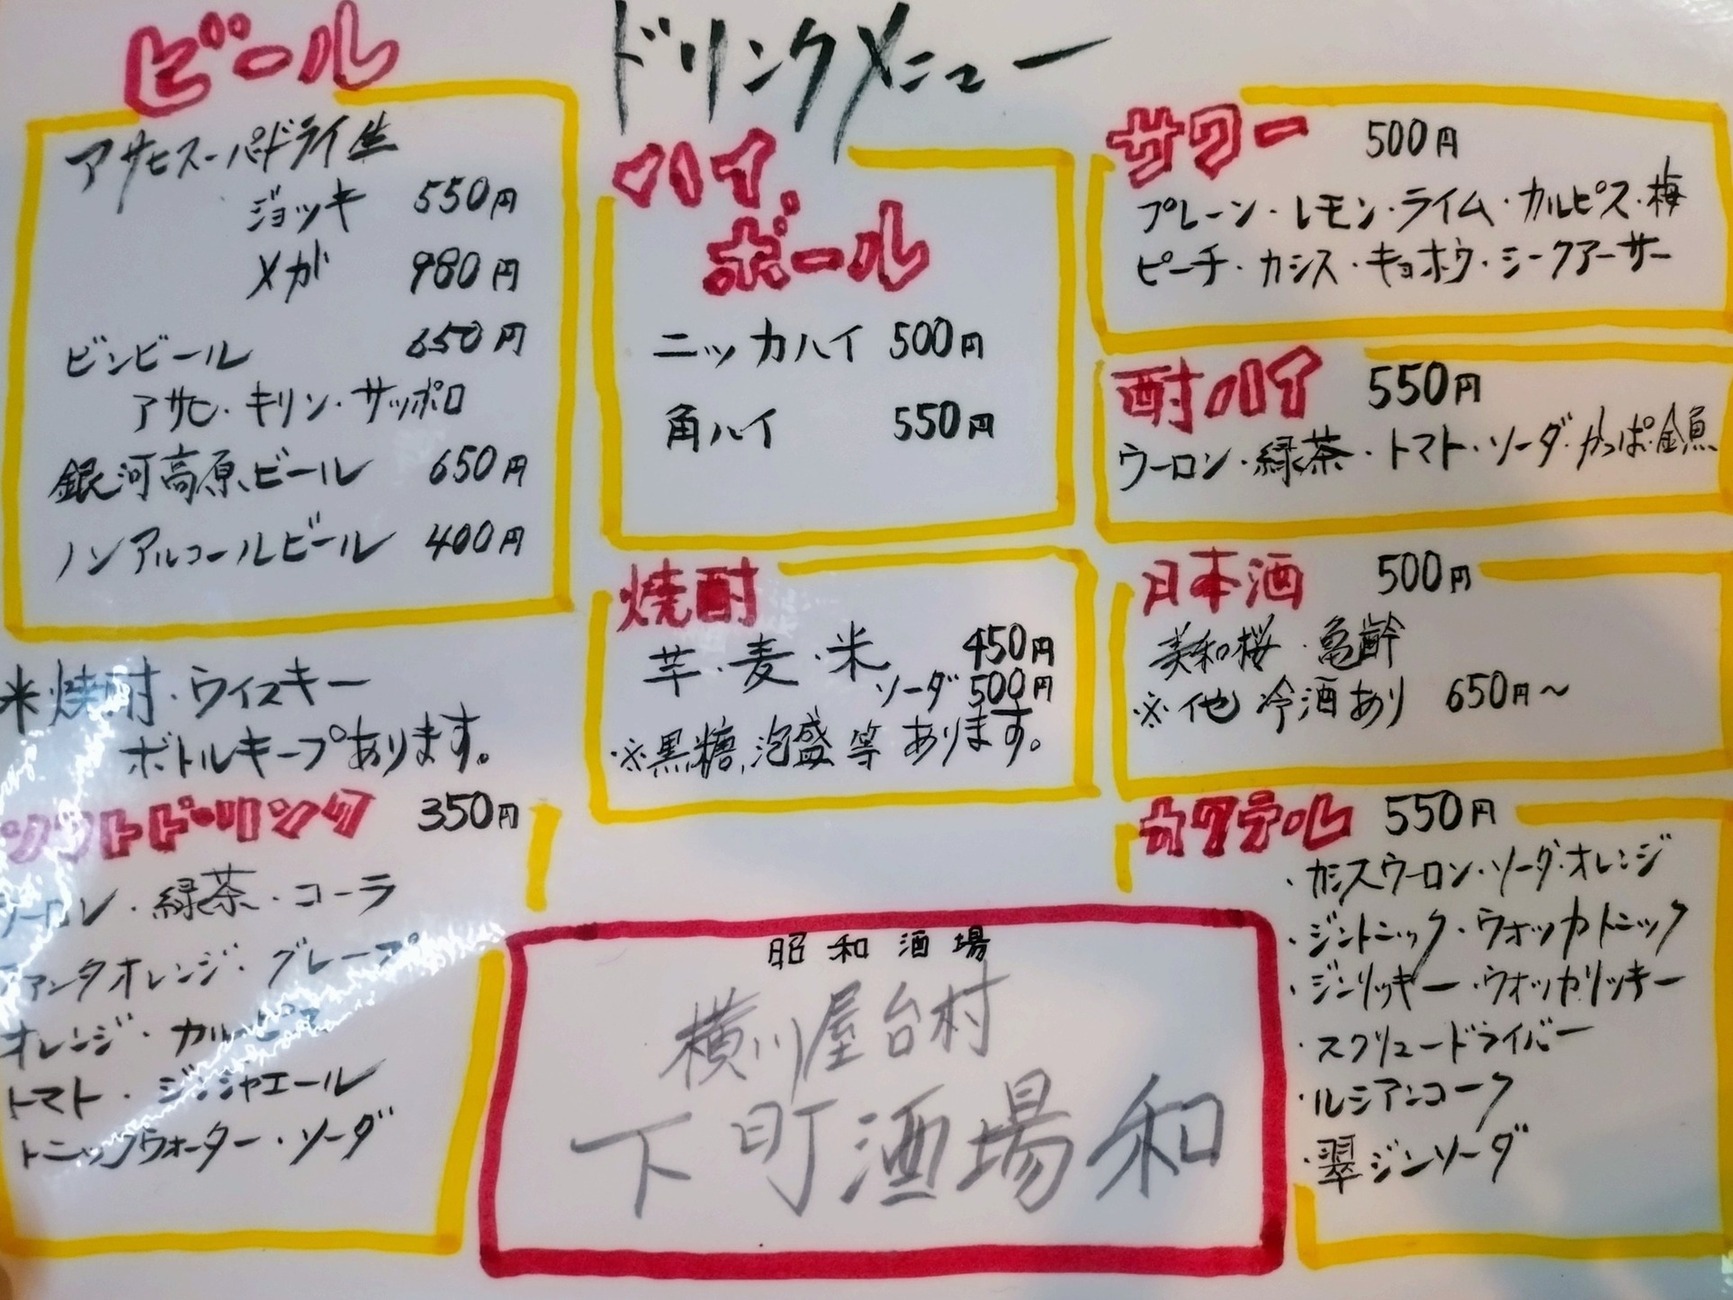 ドリンクメニュー
ビール
アサヒスーパードライ生
ジョッキ 550円
メガ 980円
ビンビール 650円
アサヒ・キリン・サッポロ
銀河高原ビール 650円
ノンアルコールビール 400円
米焼酎・ウイスキー
ボトルキープあります。
ソフトドリンク 350円
ウーロン・緑茶・コーラ
ファンタオレンジ・グレープ
オレンジ・カルピス
トマト・ジンジャエール
トニックウォーター・ソーダ
ハイ
ボール
ニッカハイ 500円
角ハイ 550円
焼酎
芋・麦・米 450円
ソーダ 500円
※黒糖、泡盛等あります。
サワー 500円
プレーン・レモン・ライム・カルピス・梅
ピーチ・カシス・キョホウ・シークアーサー
酎ハイ 550円
ウーロン・緑茶・トマト・ソーダ・かっぱ・金魚
日本酒 500円
美和桜・亀齢
※他冷酒あり 650円〜
カクテル 550円
・カシスウーロン・ソーダ・オレンジ
・ジントニック・ウォッカトニック
・ジンリッキー・ウォッカリッキー
・スクリュードライバー
・ルシアンコーク
・翠ジンソーダ
昭和酒場
横川屋台村
下町酒場和